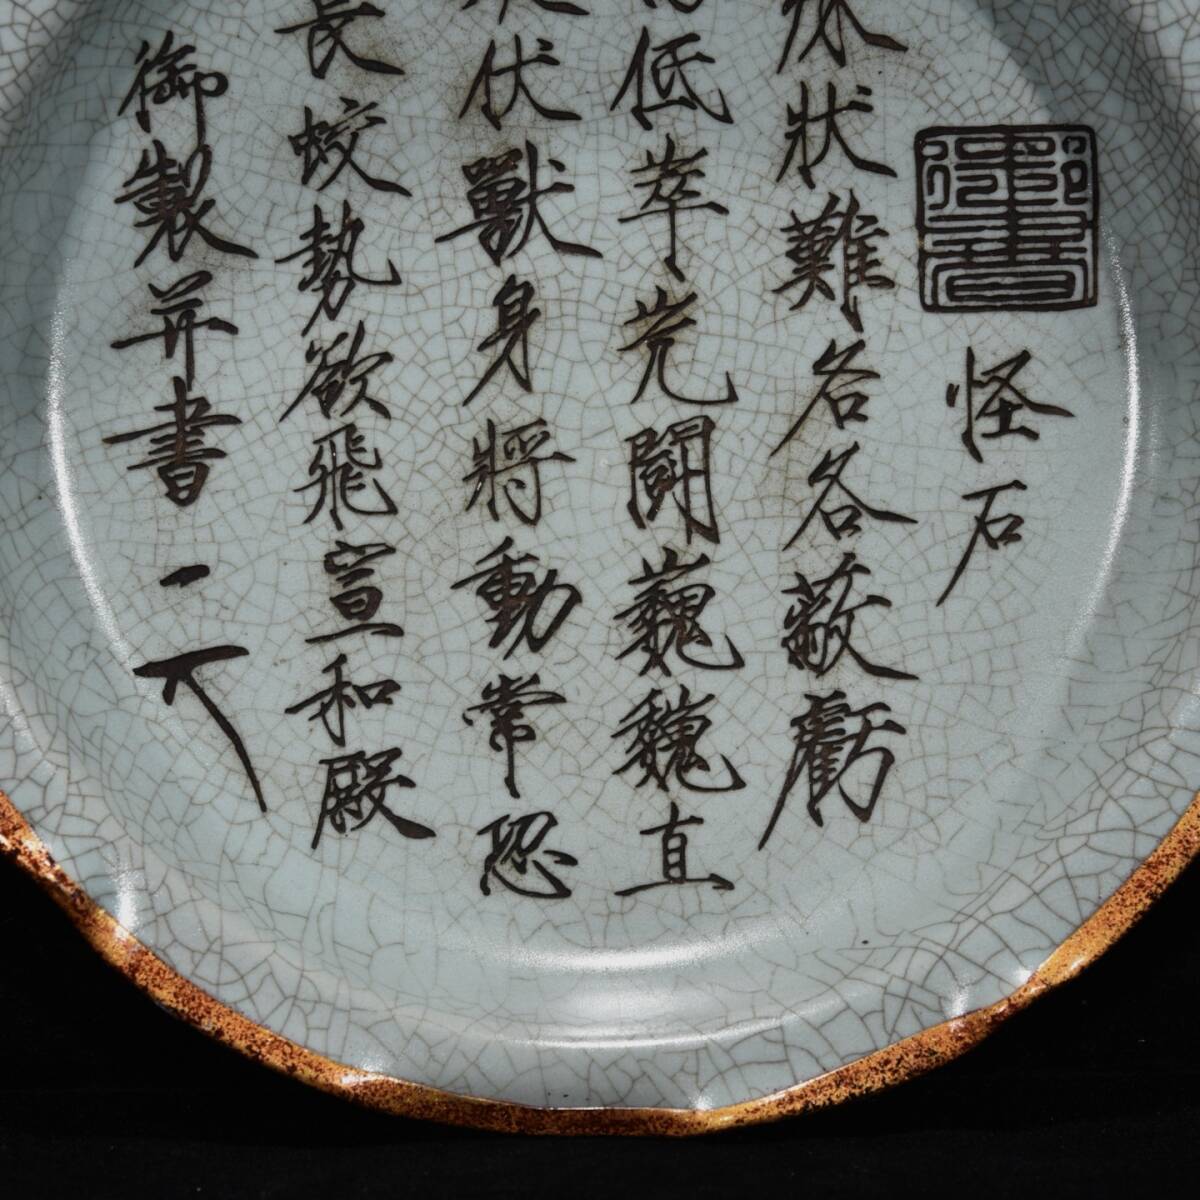 御書
怪石
狀難各各蔽虧
低萃鬪巍巍直
伏獸身將動常恐
長蛟勢欲飛宣和殿
御製并書